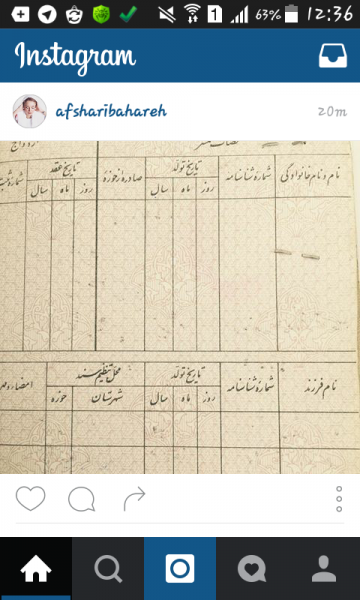 63% 12:36
Instagram
afsharibahareh 20m
ازدواج مشخصات همسر
نام و نام خانوادگی شماره شناسنامه تاریخ تولد صادره از حوزه تاریخ عقد
روز ماه سال روز ماه سال
نام فرزند شماره شناسنامه تاریخ تولد محل تنظیم سند امضاء و مهر
روز ماه سال شهرستان حوزه